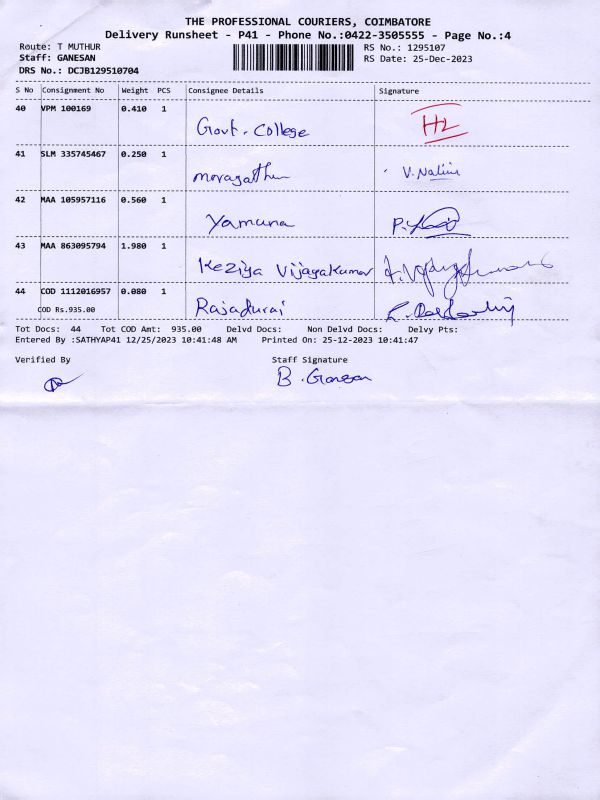 THE PROFESSIONAL COURIERS, COIMBATORE
Delivery Runsheet - P41 - Phone No.:0422-3505555 - Page No.:4
Route: T MUTHUR
RS No.: 1295107
Staff: GANESAN
RS Date: 25-Dec-2023
DRS No.: DCJB129510704
S No Consignment No Weight PCS Consignee Details Signature
40 VPM 100169 0.410 1
Govt. College HL
41 SLM 335745467 0.250 1
V. Nalini
42 MAA 105957116 0.560 1
Yamuna
43 MAA 863095794 1.980 1
Keziya Vijayakumar
44 COD 1112016957 0.080 1
COD Rs.935.00 Rajadurai
Tot Docs: 44 Tot COD Amt: 935.00 Delvd Docs: Non Delvd Docs: Delvy Pts:
Entered By :SATHYAP41 12/25/2023 10:41:48 AM Printed On: 25-12-2023 10:41:47
Verified By Staff Signature